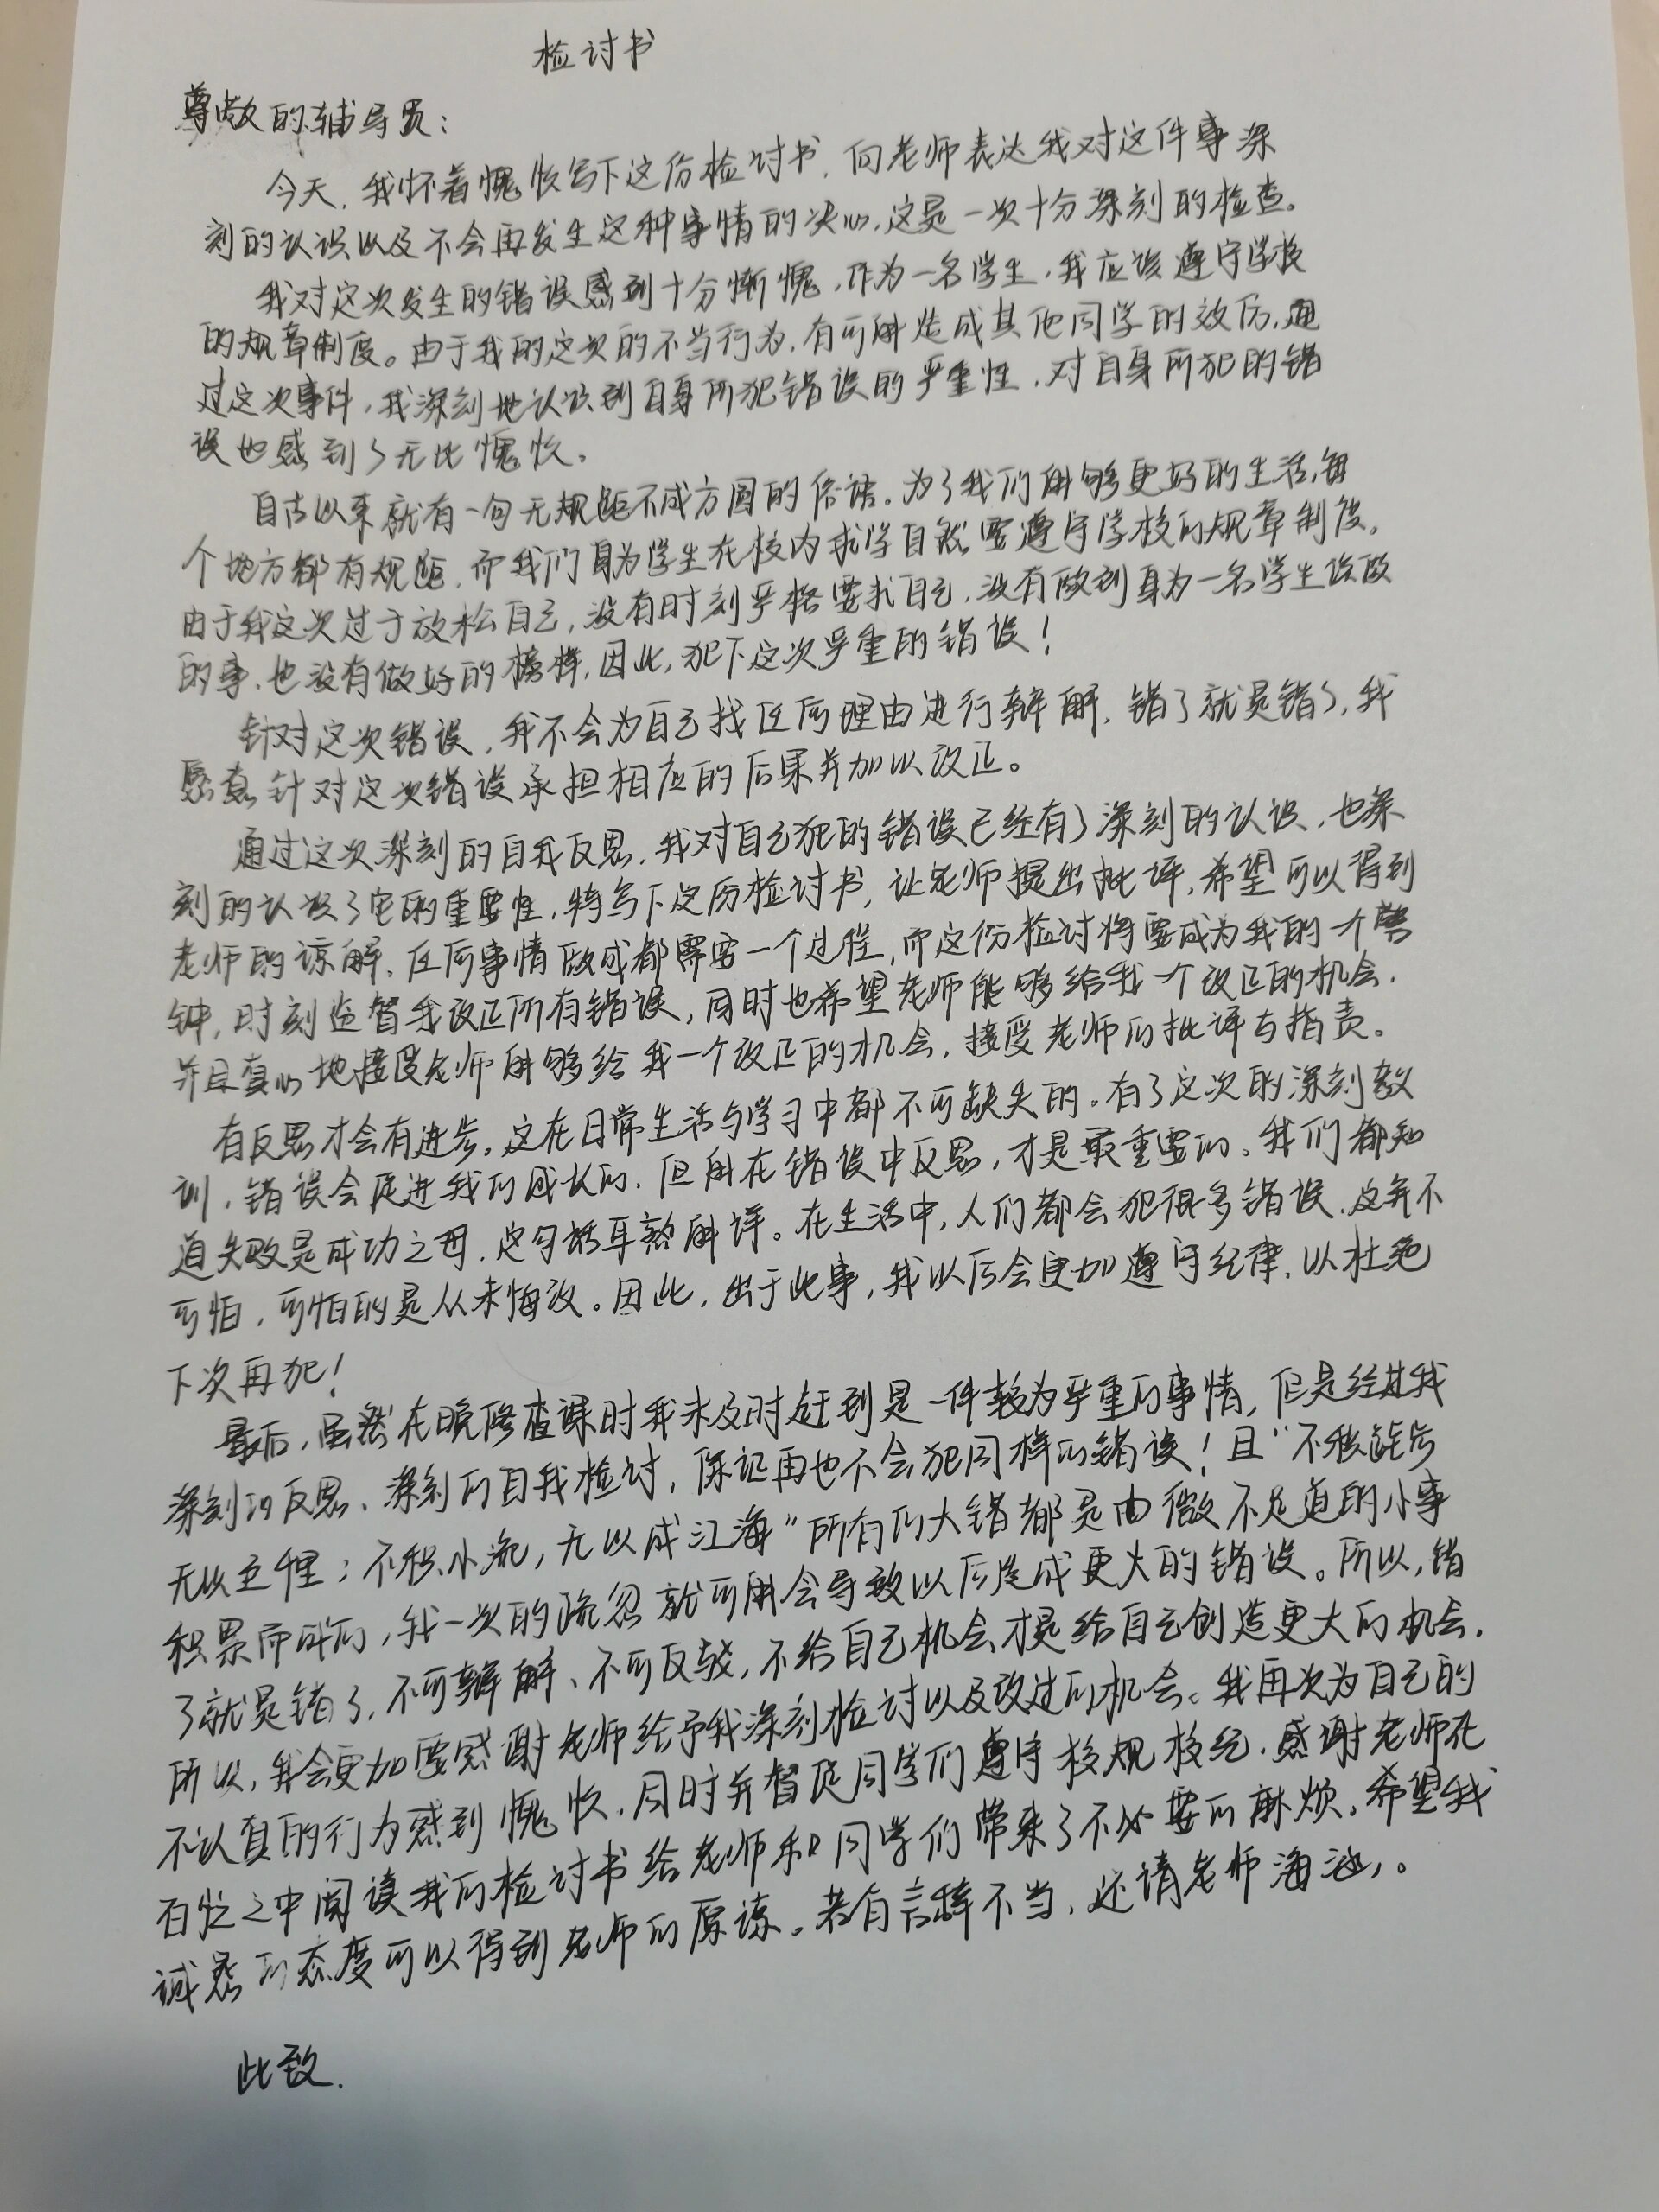 检讨书
尊敬的辅导员：
今天，我怀着愧疚写下这份检讨书，向老师表达我对这件事深
刻的认识以及不会再发生这种事情的决心，这是一次十分深刻的检查。
我对这次发生的错误感到十分惭愧，作为一名学生，我应该遵守学校
的规章制度。由于我的这次的不当行为，有可能造成其他同学的效仿，通
过这次事件，我深刻地认识到自身所犯错误的严重性，对自身所犯的错
误也感到了无比愧疚。
自古以来就有一句无规距不成方圆的俗话。为了我们能够更好的生活，每
个地方都有规距，而我们身为学生在校内求学自然要遵守学校的规章制度。
由于我这次过于放松自己，没有时刻严格要求自己，没有做到身为一名学生该做
的事，也没有做好的榜样，因此，犯下这次严重的错误！
针对这次错误，我不会为自己找任何理由进行辩解，错了就是错了，我
愿意针对这次错误承担相应的后果并加以改正。
通过这次深刻的自我反思，我对自己犯的错误已经有了深刻的认识，也深
刻的认识了它的重要性，特写下这份检讨书，让老师提出批评，希望可以得到
老师的谅解，任何事情做成都需要一个过程，而这份检讨将要成为我的一个警
钟，时刻监督我改正所有错误，同时也希望老师能够给我一个改正的机会，
并且真心地接受老师能够给我一个改正的机会，接受老师的批评与指责。
有反思才会有进步，这在日常生活与学习中都不可缺失的。有了这次的深刻教
训，错误会促进我的成长的，但能在错误中反思，才是最重要的。我们都知
道失败是成功之母，这句话耳熟能详。在生活中，人们都会犯很多错误，这并不
可怕，可怕的是从未悔改。因此，出于此事，我以后会更加遵守纪律，以杜绝
下次再犯！
最后，虽然在晚修查课时我未及时赶到是一件较为严重的事情，但是经过我
深刻的反思、深刻的自我检讨，保证再也不会犯同样的错误！且“不积跬步
无以至程；不积小流，无以成江海”所有的大错都是由微不足道的小事
积累而成的，我一次的疏忽就可能会导致以后造成更大的错误。所以，错
了就是错了，不可辩解、不可反驳，不给自己机会才是给自己创造更大的机会，
所以，我会更加要感谢老师给予我深刻检讨以及改过的机会。我再次为自己的
不认真的行为感到愧疚，同时并督促同学们遵守校规校纪，感谢老师在
百忙之中阅读我的检讨书给老师和同学们带来了不必要的麻烦。希望我
诚恳的态度可以得到老师的原谅。若有言辞不当，还请老师海涵，。
此致.